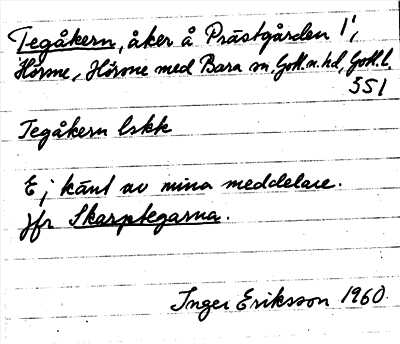 Tegåkern, åker å Prästgården 1¹,
Hörsne, Hörsne med Bara sn, Gotl. n. hd, Gotl. l.
551
Tegåkern lskk
Ej känt av mina meddelare.
jfr Skarptegarna.
Inger Eriksson 1960.